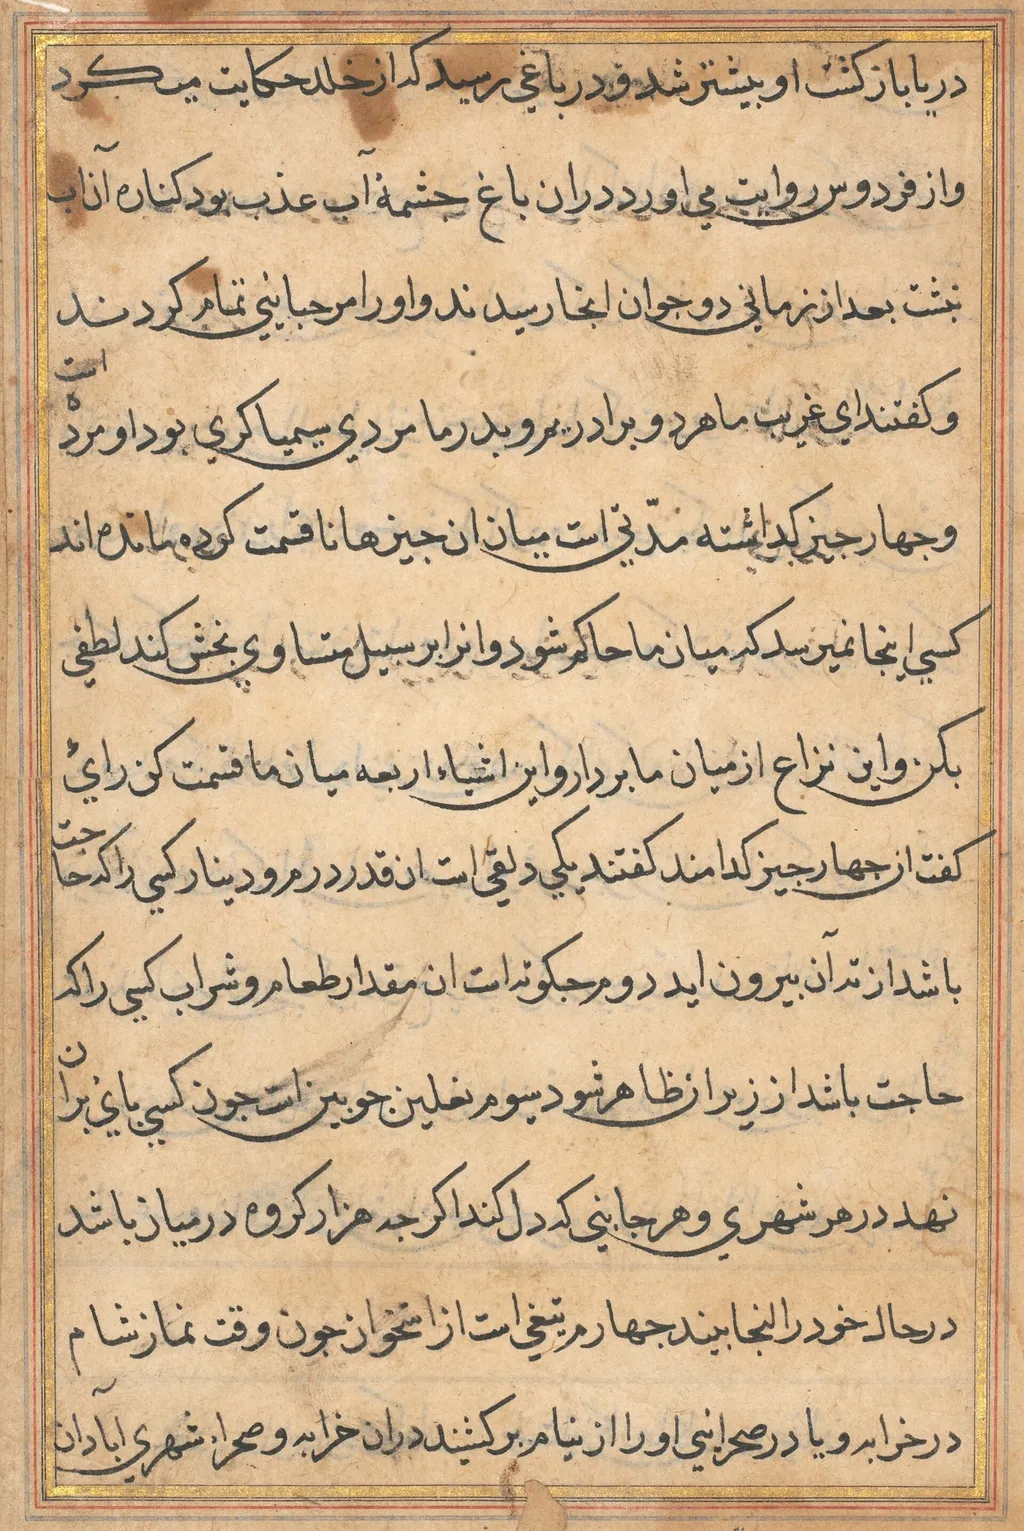 دریا باز کشت او بیشتر شد و در باغی رسید که از خلد حکایت میکرد
و از فردوس روایت می اورد دران باغ چشمهٔ آب عذب بود کناره آن اب
بنشت بعد از زمانی دو جوان انجا رسیدند و او را مرحبایی تمام کردند
و کفتند ای غریب ما هر دو برادریم و پدر ما مردی سیمیا کری بود او مرده است
و جهار جیز کداشته مدّتی است میان ان جیزها نا قسمت کرده مانده اند
کسی اینجا نمیرسد که میان ما حاکم شود و انرا بر سبیل متساوی بخش کند لطفی
بکن و این نزاع از میان ما بردار و این اشیاء اربعه میان ما قسمت کن رای
کفت ان جهار جیز کدامند کفتند یکی دلقی است ان قدر درم و دینار کسی را که حاجت
باشد از ته آن بیرون اید دوم جبکوته است ان مقدار طعام و شراب کسی را که
حاجت باشد از زیر ان ظاهر شود سیوم نعلین جوبین است جون کسی بای بران
نهد در هر شهری و هر جایی که دل کند اکر جه هزار کروه در میان باشد
در حال خود را انجا بیند جهارم تیغی است از استخوان جون وقت نماز شام
در خرابه و یا در صحرایی او را از نیام بر کشند دران خرابه و صحرا شهری ابادان